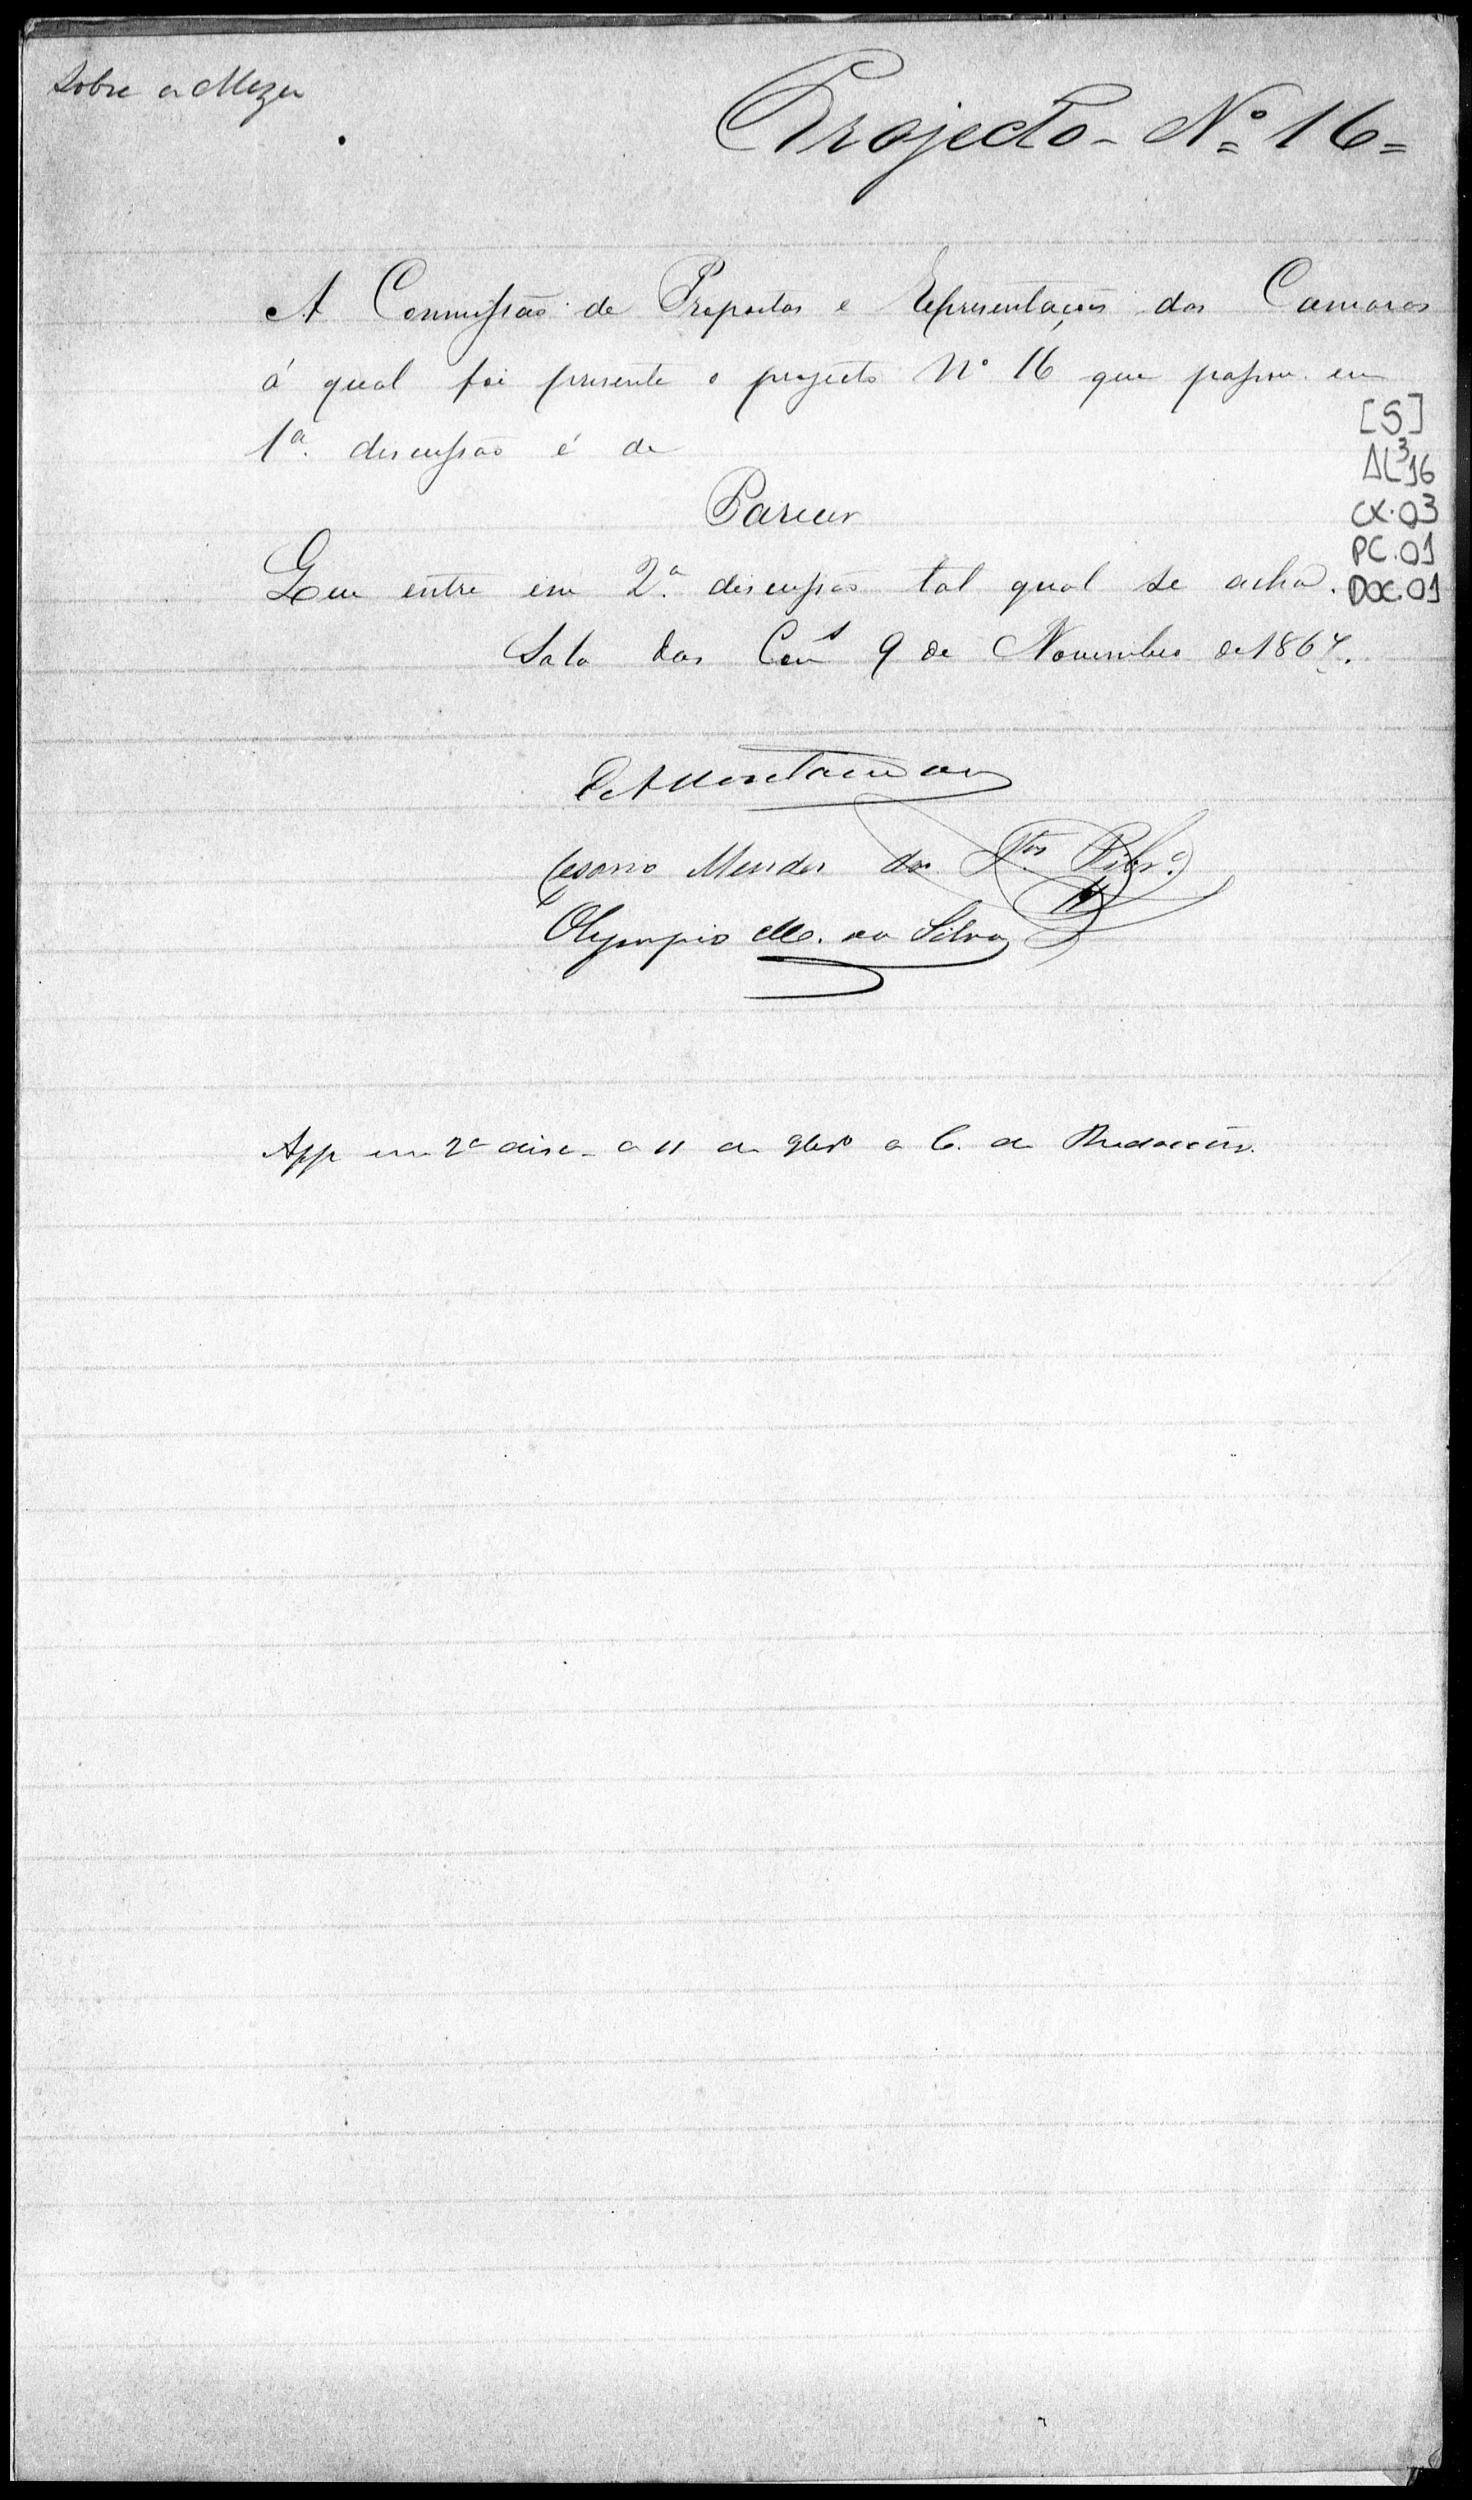 Sobre a Meza
Projecto - Nº 16 =
A Commissão de Propostas e Representações das Camaras
á qual foi presente o projecto Nº 16 que passou em
1ª discussão é de
Parecer
Que entre em 2ª discussão tal qual se acha.
Sala das Com.s 9 de Novembro de 1867.
[S]
AL³16
CX.03
PC.01
DOC.01
Cesario Mendes dos S.tos Ribr.º
Olympio M. da Silva
App em 2ª disc. a 11 de 9brº a C. de Redacção.